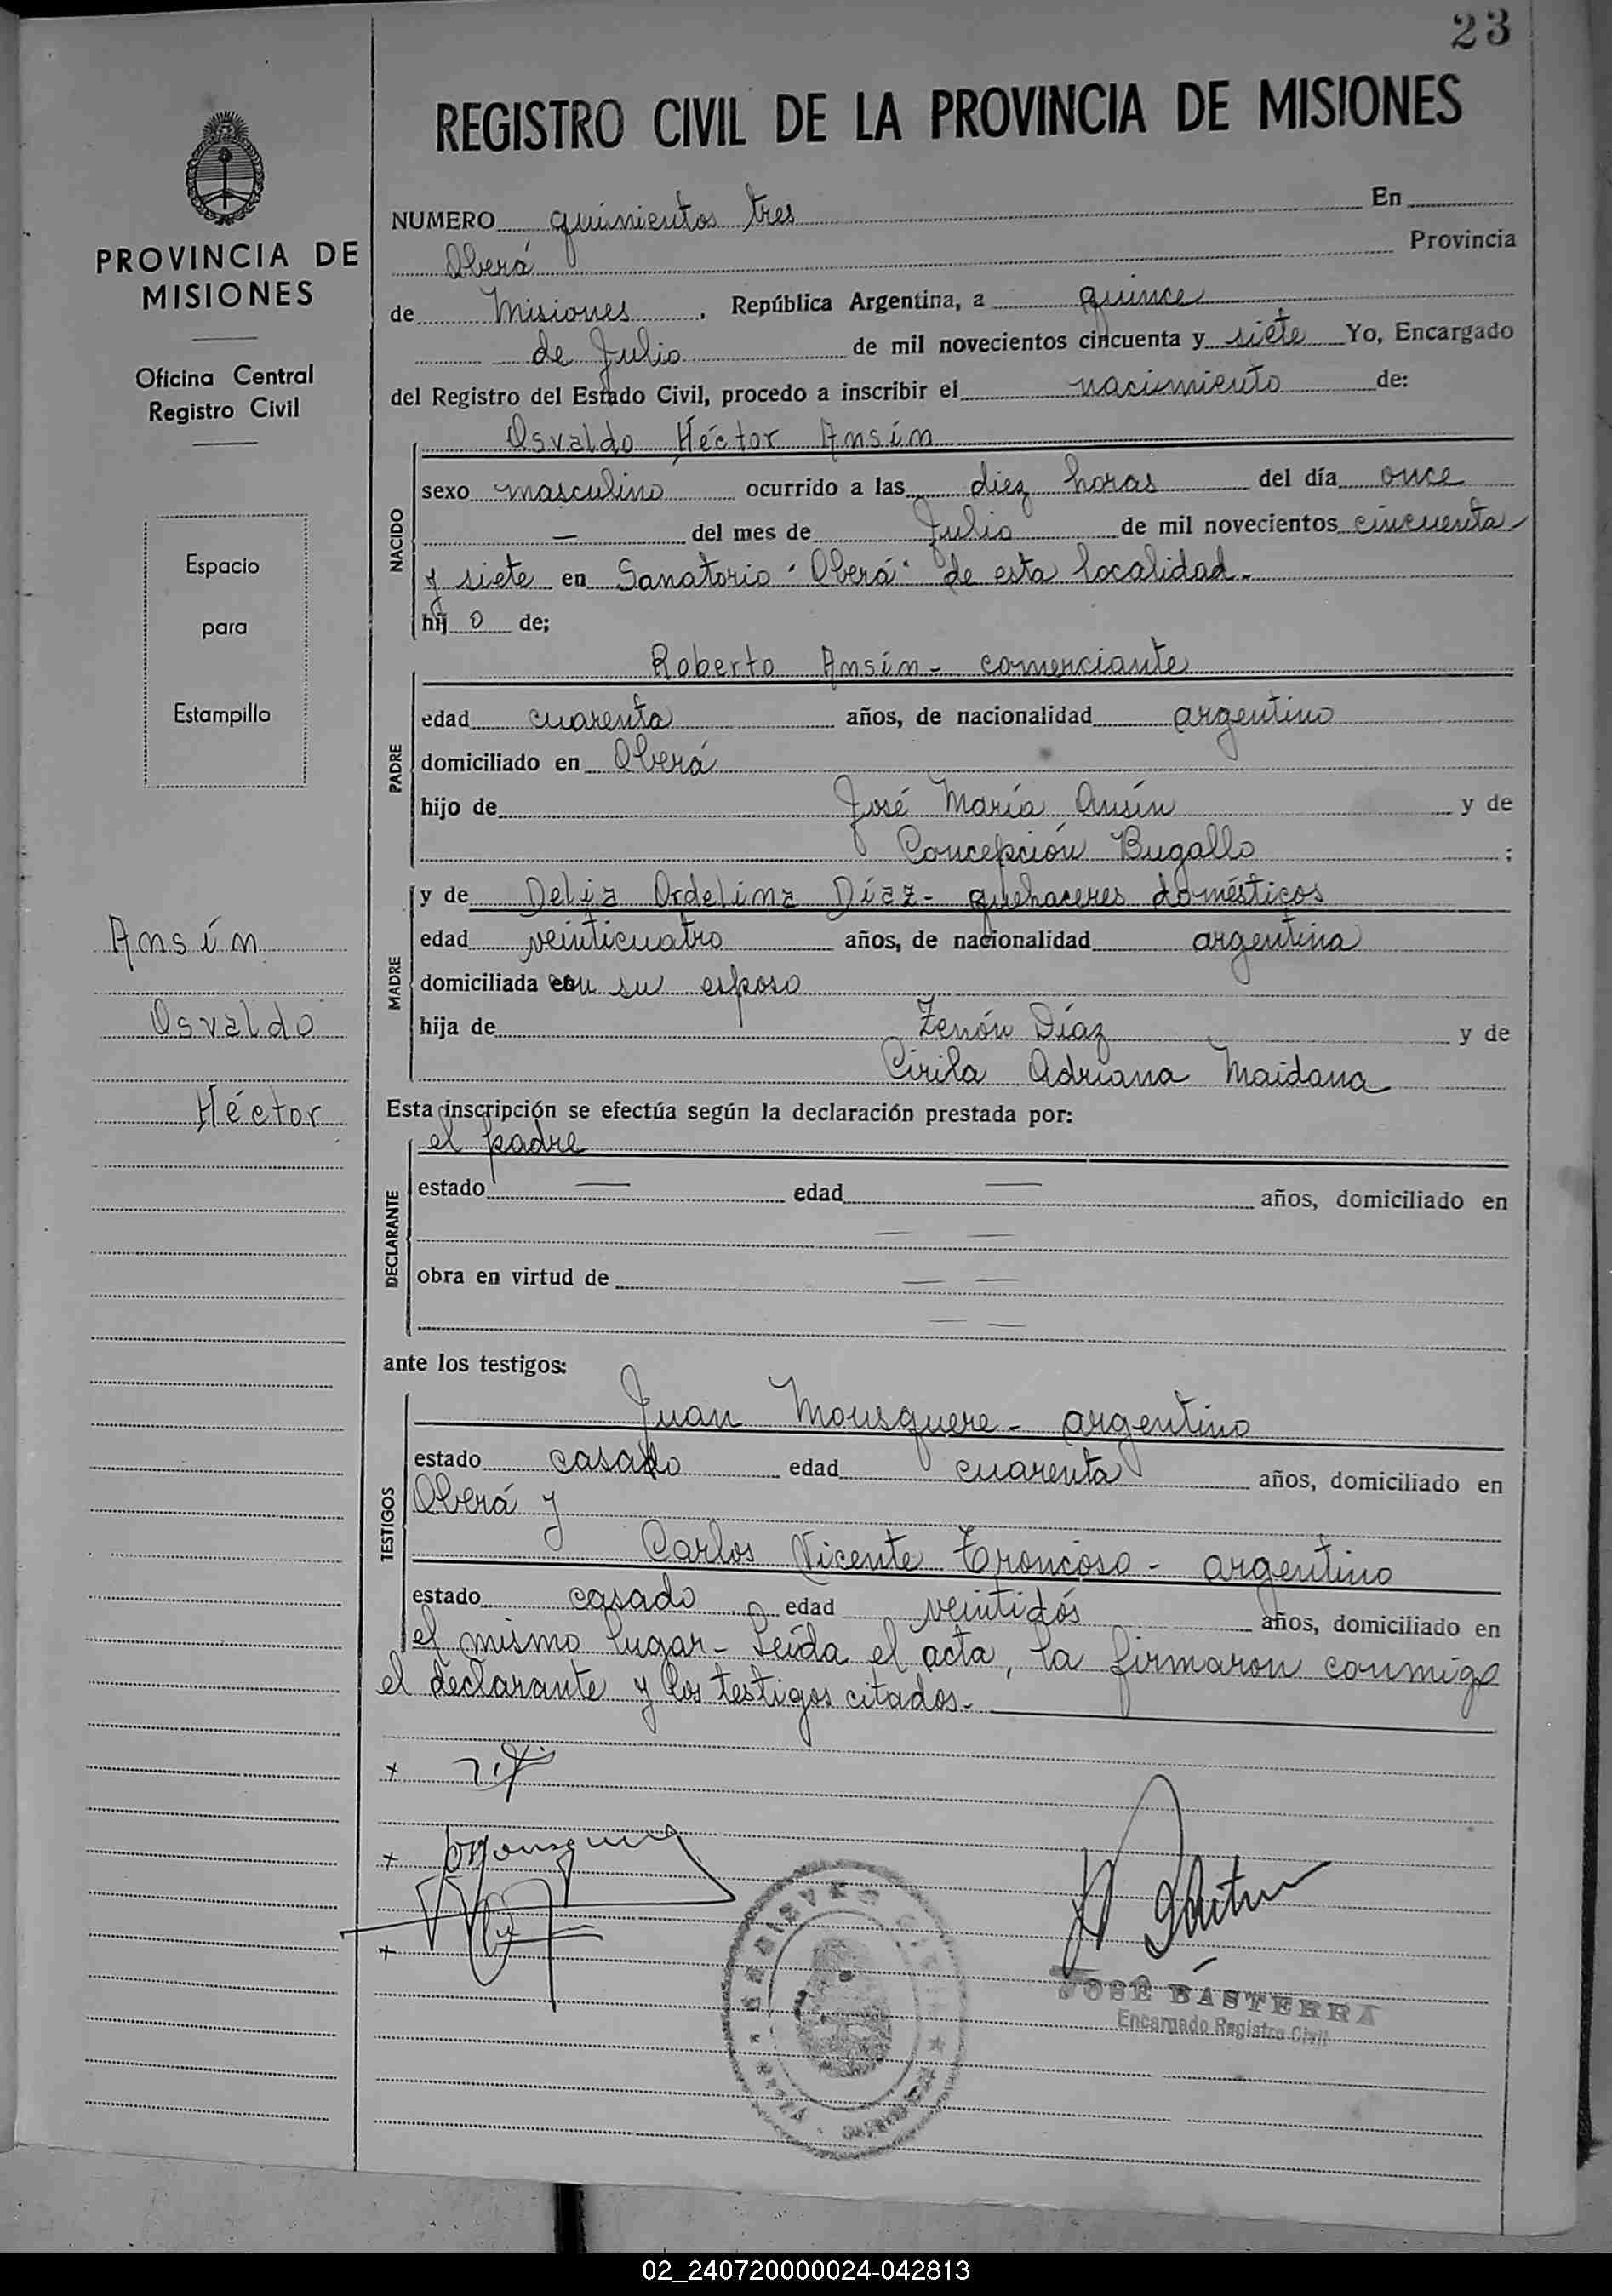 23
REGISTRO CIVIL DE LA PROVINCIA DE MISIONES
PROVINCIA DE
MISIONES
Oficina Central
Registro Civil
Espacio
para
Estampilla
Ansín
Osvaldo
Héctor
NUMERO quinientos tres En
Oberá Provincia
de Misiones , República Argentina, a quince
de Julio de mil novecientos cincuenta y siete Yo, Encargado
del Registro del Estado Civil, procedo a inscribir el nacimiento de:
NACIDO
Osvaldo Héctor Ansín
sexo masculino ocurrido a las diez horas del día once
— del mes de Julio de mil novecientos cincuenta
y siete en Sanatorio "Oberá" de esta localidad.
hij o de;
PADRE
Roberto Ansín - comerciante
edad cuarenta años, de nacionalidad argentino
domiciliado en Oberá
hijo de José María Ansín y de
Concepción Bugallo ;
MADRE
y de Delia Ordelina Díaz - quehaceres domésticos
edad veinticuatro años, de nacionalidad argentina
domiciliada con su esposo
hija de Zenón Díaz y de
Cirila Adriana Maidana
Esta inscripción se efectúa según la declaración prestada por:
DECLARANTE
el padre
estado — edad — años, domiciliado en
— —
obra en virtud de — —
— —
ante los testigos:
TESTIGOS
Juan Mousquere - argentino
estado casado edad cuarenta años, domiciliado en
Oberá y
Carlos Vicente Troncoso - argentino
estado casado edad veintidós años, domiciliado en
el mismo lugar - Leída el acta, la firmaron conmigo
el declarante y los testigos citados.-
+
+
+
JOSÉ BASTERRA
Encargado Registro Civil
02_240720000024-042813